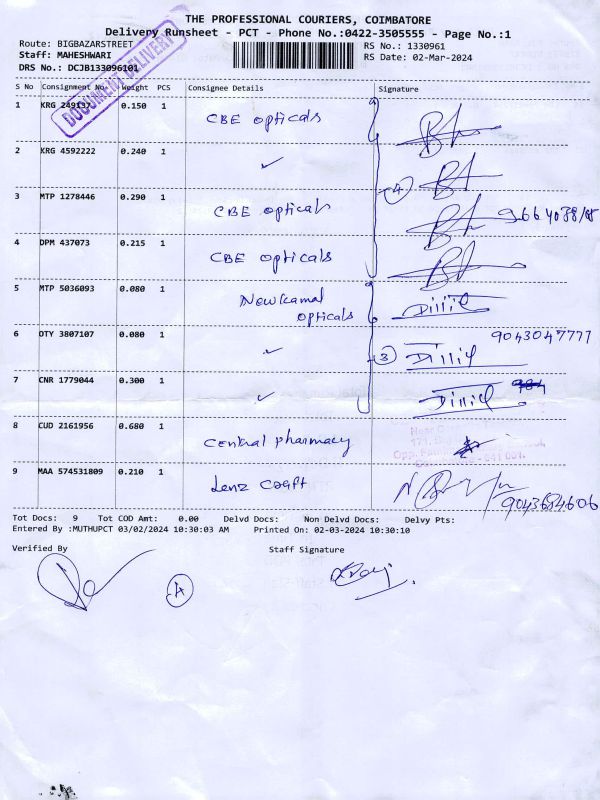 THE PROFESSIONAL COURIERS, COIMBATORE
Delivery Runsheet - PCT - Phone No.:0422-3505555 - Page No.:1
Route: BIGBAZARSTREET
RS No.: 1330961
Staff: MAHESHWARI
RS Date: 02-Mar-2024
DRS No.: DCJB133096101
DOCUMENT DELIVERY
S No Consignment No. Weight PCS Consignee Details Signature
1 KRG 0.150 1 CBE opticals
2 KRG 4592222 0.240 1 ✓
4
3 MTP 1278446 0.290 1 CBE opticals
4 DPM 437073 0.215 1 CBE opticals
5 MTP 5036093 0.080 1 New kamal opticals Dillic
6 DTY 3807107 0.080 1 ✓ 3 Dillic 9043047777
7 CNR 1779044 0.300 1 ✓ Dillic
8 CUD 2161956 0.680 1 central pharmacy
9 MAA 574531809 0.210 1 Lenz craft
Tot Docs: 9 Tot COD Amt: 0.00 Delvd Docs: Non Delvd Docs: Delvy Pts:
Entered By :MUTHUPCT 03/02/2024 10:30:03 AM Printed On: 02-03-2024 10:30:10
Verified By Staff Signature